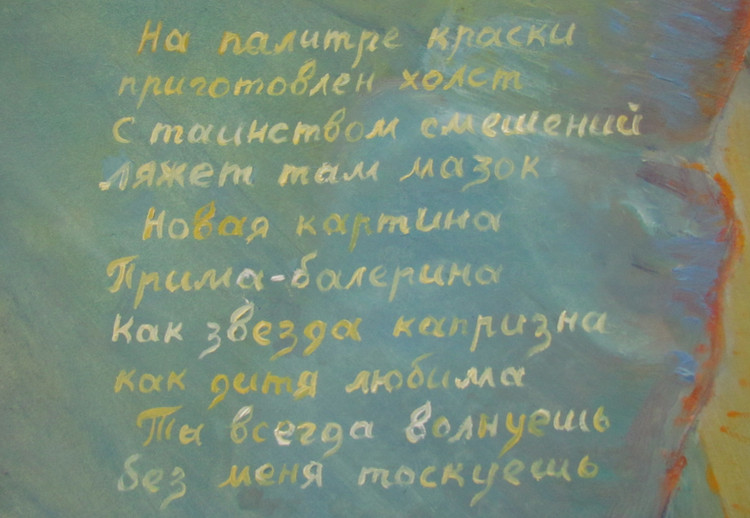 На палитре краски
приготовлен холст
С таинством смешений
ляжет там мазок
Новая картина
Прима-балерина
Как звезда капризна
как дитя любима
Ты всегда волнуешь
без меня тоскуешь